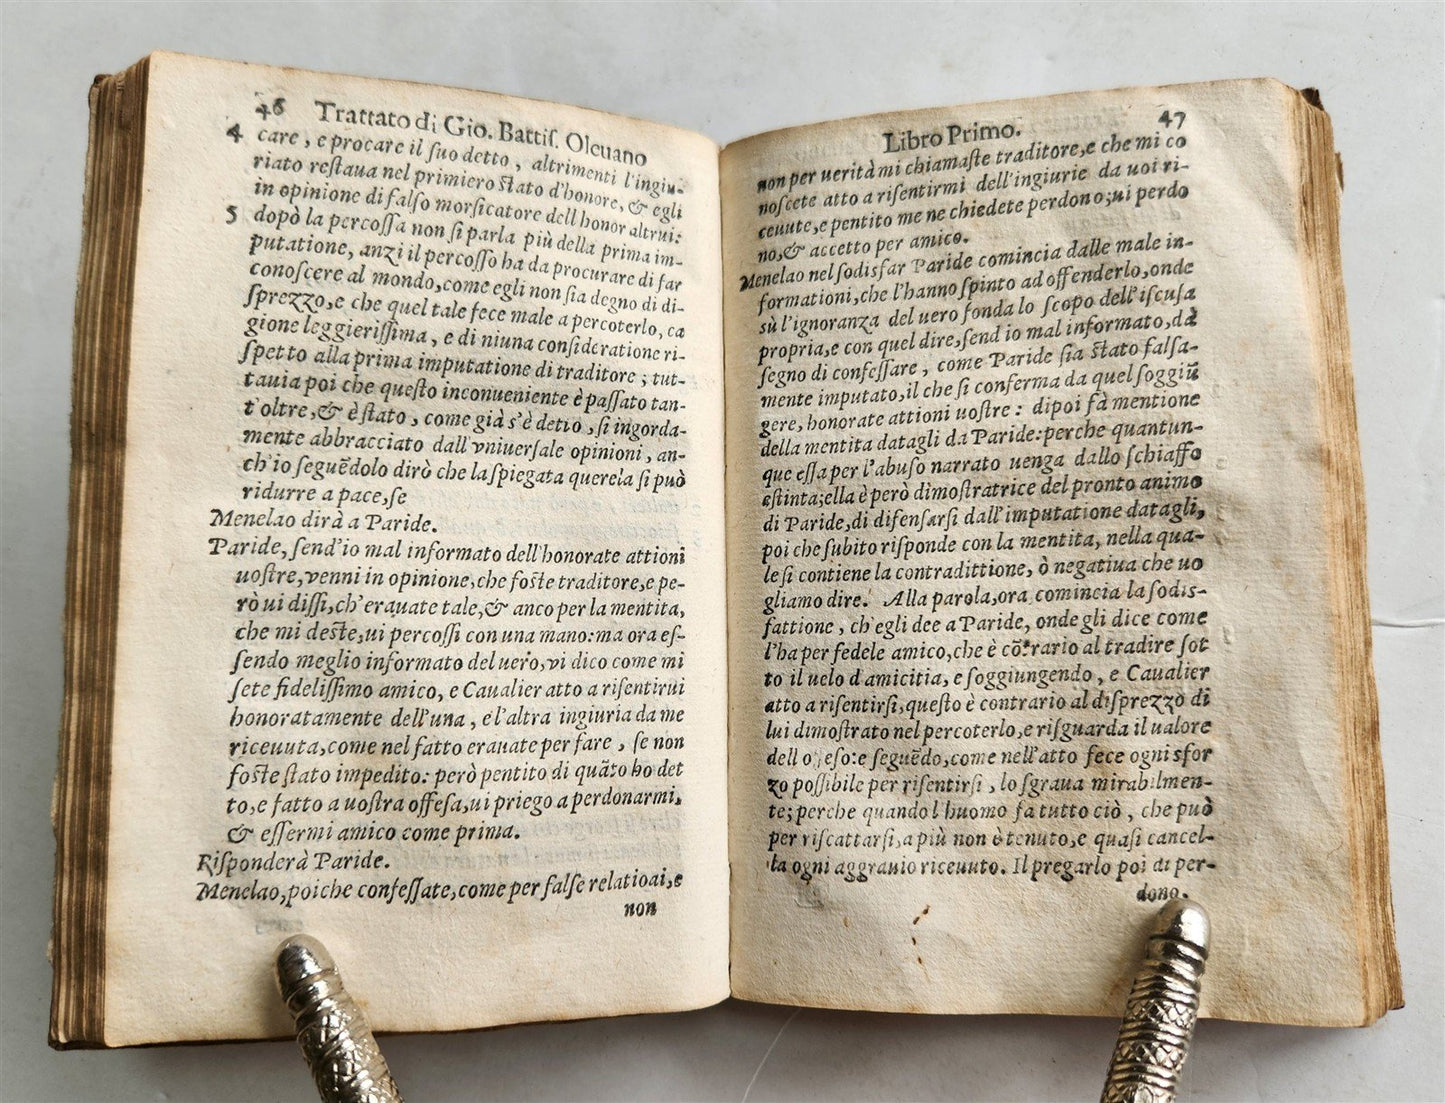 46 Trattato di Gio. Battiſ. Oleuano
4 care, e procare il ſuo detto, altrimenti l'ingiu-
riato reſtaua nel primiero ſtato d'honore, & egli
in opinione di falſo morſicatore dell honor altrui:
5 dopò la percoſſa non ſi parla più della prima im-
putatione, anzi il percoſſo ha da procurare di far
conoſcere al mondo, come egli non ſia degno di di-
ſprezzo, e che quel tale fece male a percoterlo, ca
gione leggieriſſima, e di niuna conſideratione ri-
ſpetto alla prima imputatione di traditore; tut-
tauia poi che queſto inconueniente è paſſato tan-
t'oltre, & è ſtato, come già s'è detio, ſi ingorda-
mente abbracciato dall'vniuerſale opinioni, an-
ch'io ſeguēdolo dirò che la ſpiegata querela ſi può
ridurre a pace, ſe
Menelao dirà a Paride.
Paride, ſend'io mal informato dell'honorate attioni
uoſtre, venni in opinione, che foſte traditore, e pe-
rò ui diſſi, ch'erauate tale, & anco per la mentita,
che mi deſte, ui percoſſi con una mano: ma ora eſ-
ſendo meglio informato del uero, vi dico come mi
ſete fideliſſimo amico, e Caualier atto a riſentirui
honoratamente dell'una, e l'altra ingiuria da me
riceuuta, come nel fatto erauate per fare, ſe non
foſte ſtato impedito: però pentito di quāto ho det
to, e fatto a uoſtra offeſa, ui priego a perdonarmi,
& eſſermi amico come prima.
Riſponderà Paride.
Menelao, poiche confeſſate, come per falſe relatioai, e
non
Libro Primo. 47
non per uerità mi chiamaſte traditore, e che mi co
noſcete atto a riſentirmi dell'ingiurie da uoi ri-
ceuute, e pentito me ne chiedete perdono; ui perdo
no, & accetto per amico.
Menelao nel ſodisfar Paride comincia dalle male in-
formationi, che l'hanno ſpinto ad offenderlo, onde
sù l'ignoranza del uero fonda lo ſcopo dell'iſcuſa
propria, e con quel dire, ſend io mal informato, dà
ſegno di confeſſare, come Paride ſia ſtato falſa-
mente imputato, il che ſi conferma da quel ſoggiū
gere, honorate attioni uoſtre: dipoi fà mentione
della mentita datagli da Paride: perche quantun-
que eſſa per l'abuſo narrato uenga dallo ſchiaffo
eſtinta; ella è però dimoſtratrice del pronto animo
di Paride, di difenſarſi dall'imputatione datagli,
poi che ſubito riſponde con la mentita, nella qua-
le ſi contiene la contradittione, ò negatiua che uo
gliamo dire. Alla parola, ora comincia la ſodis-
fattione, ch'egli dee a Paride, onde gli dice come
l'ha per fedele amico, che è cōtrario al tradire ſot
to il uelo d'amicitia, e ſoggiungendo, e Caualier
atto a riſentirſi, queſto è contrario al diſprezzo di
lui dimoſtrato nel percoterlo, e riſguarda il ualore
dell o eſo: e ſeguēdo, come nell'atto fece ogni sfor
zo poſſibile per riſentirſi, lo sgraua mirabilmen-
te; perche quando l huomo fa tutto ciò, che può
per riſcattarſi, a più non è tenuto, e quaſi cancel-
la ogni aggrauio riceuuto. Il pregarlo poi di per-
dono,